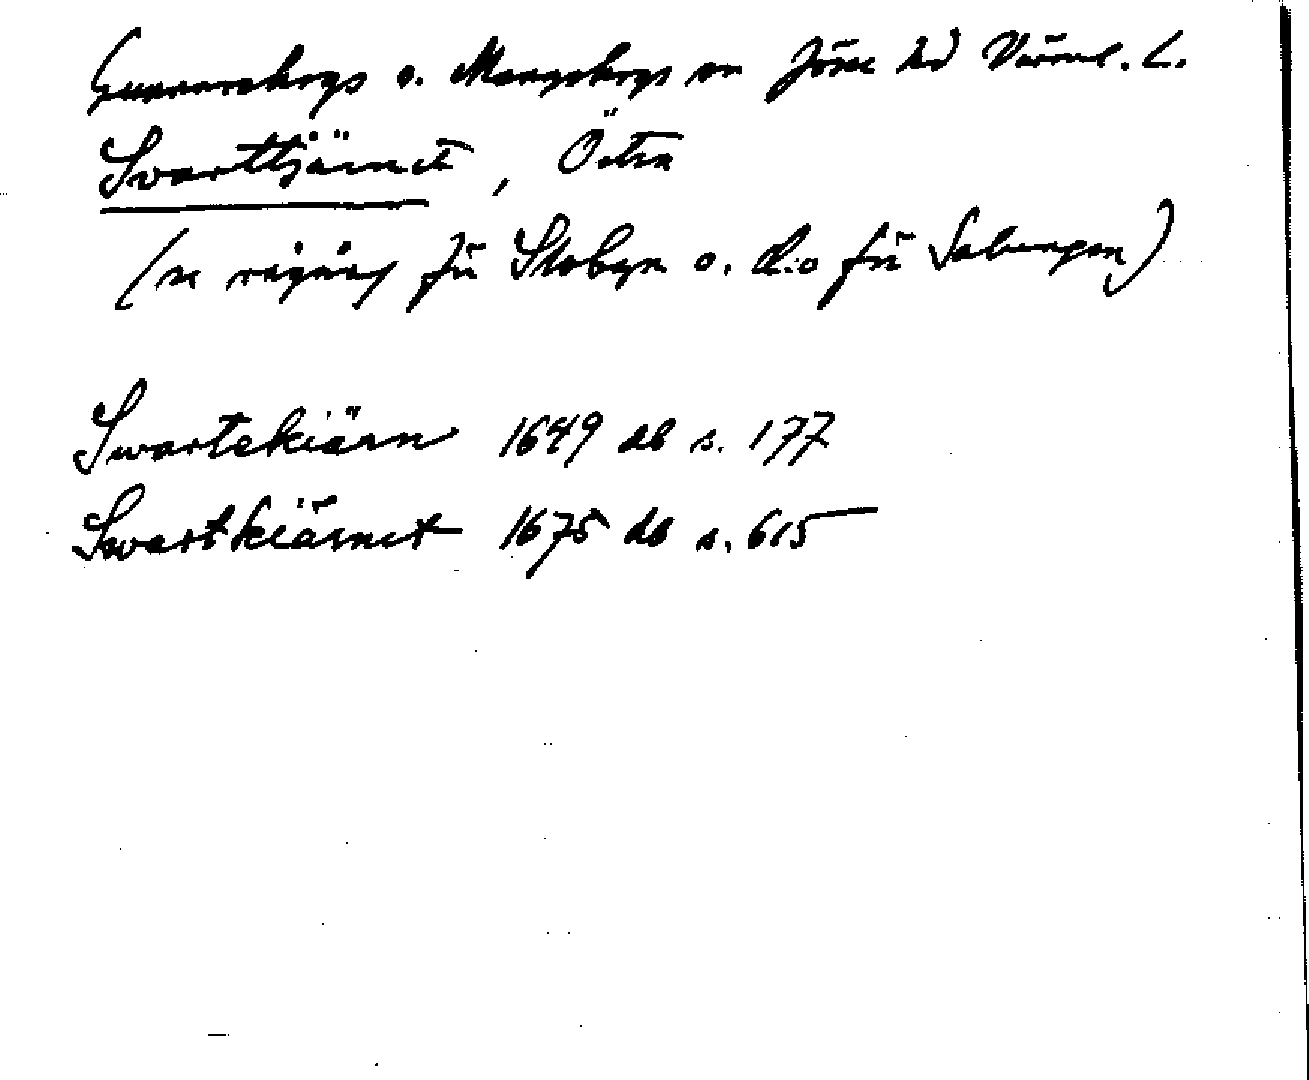 Gunnarskogs o. Mangskogs sn Jösse hd Värml. L.
Svarttjärnet, Östra
(se rågång frå Stobyn o. d:o frå Salungen)
Swartekiärn 1649 db s. 177
Swartkiärnet 1675 db s. 615